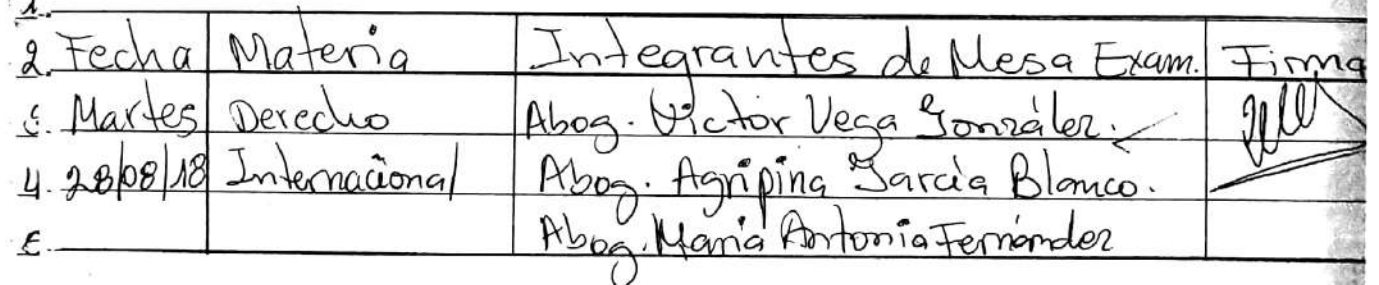 1.
2. Fecha Materia Integrantes de Mesa Exam. Firma
Martes Derecho Abog. Victor Vega González.
4. 28/08/18 Internacional Abog. Agripina García Blanco.
Abog. María Antonia Fernández